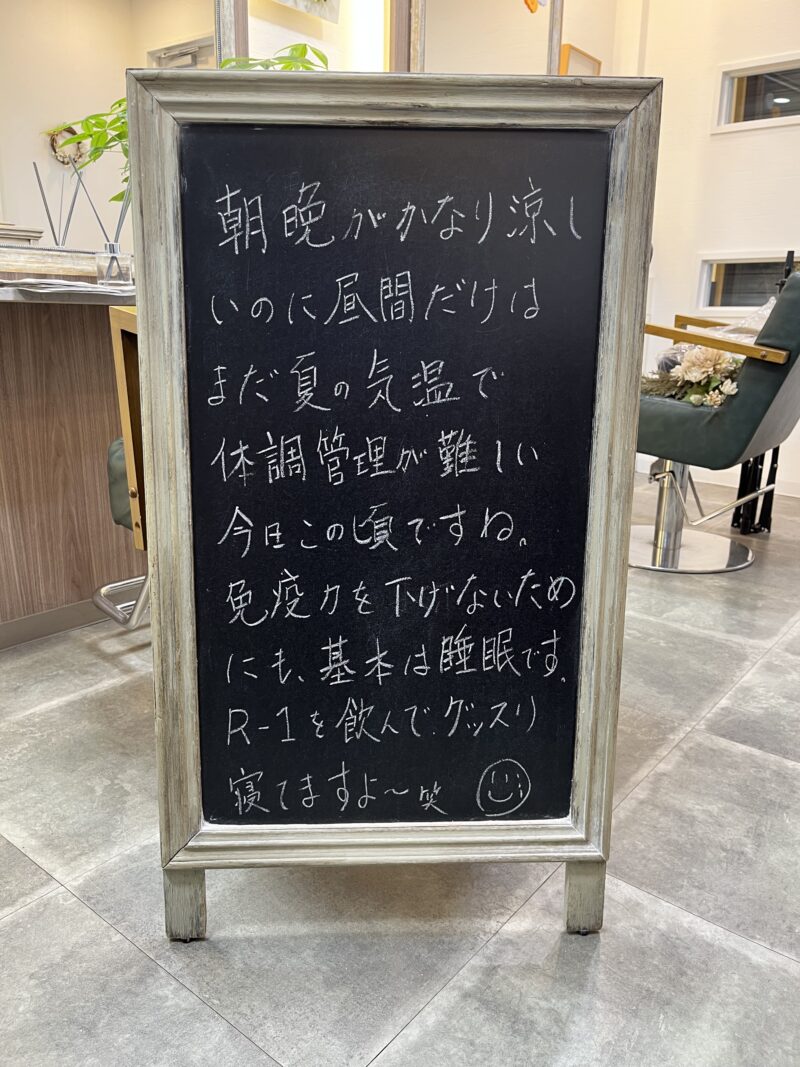 朝晩がかなり涼し
いのに昼間だけは
まだ夏の気温で
体調管理が難しい
今日この頃ですね。
免疫力を下げないため
にも、基本は睡眠です。
R-1を飲んで、グッスリ
寝てますよ〜笑